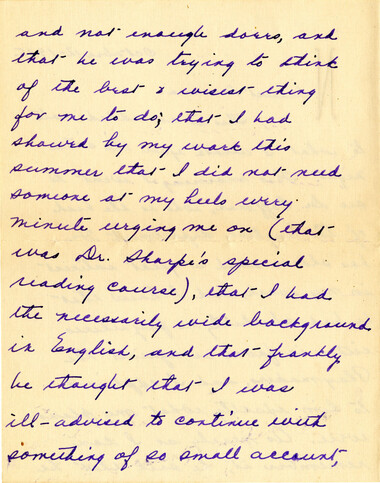 and not enough doers, and
that he was trying to think
of the best & wisest thing
for me to do; that I had
showed by my work this
summer that I did not need
someone at my heels every
minute urging me on (that
was Dr. Sharpe's special
reading course), that I had
the necessarily wide background
in English, and that frankly
he thought that I was
ill-advised to continue with
something of so small account,